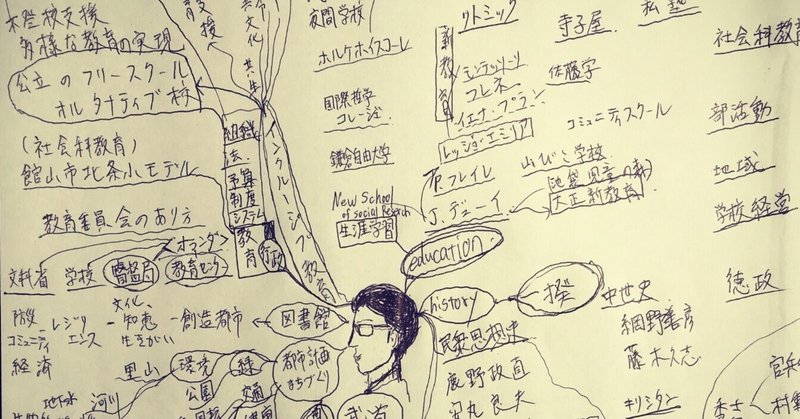 不登校支援
多様な教育の実現
公立のフリースクール
オルタナティブ校
(社会科教育)
館山市北条小モデル
教育委員会のあり方
オランダ
文科省
学校
教育センター
文化
共生
インクルーシブ教育
組織
法
予算
制度
システム
教育
行政
夜間学校
ホルケホイスコーレ
国際哲学
カレージュ
鎌倉自由大学
New School
of social Research
生涯学習
リトミック
新教育
モンテッソーリ
フレネ
イエナ・プラン
レッジョ・エミリア
P.フレイレ
J.デューイ
寺子屋
私塾
佐藤学
コミュニティスクール
山びこ学校
池袋児童の村
大正新教育
社会科教育
部活動
地域
学校経営
徳政
education
history
一揆
中世史
網野善彦
藤木久志
民衆思想史
鹿野政直
安丸良夫
キリシタン
図書館
創造都市
文化、
知恵
生きがい
レジリ
エンス
防災
コミュニティ
経済
里山
環境
緑
公園
交通
都市計画
まちづくり
河川
地下水
武道